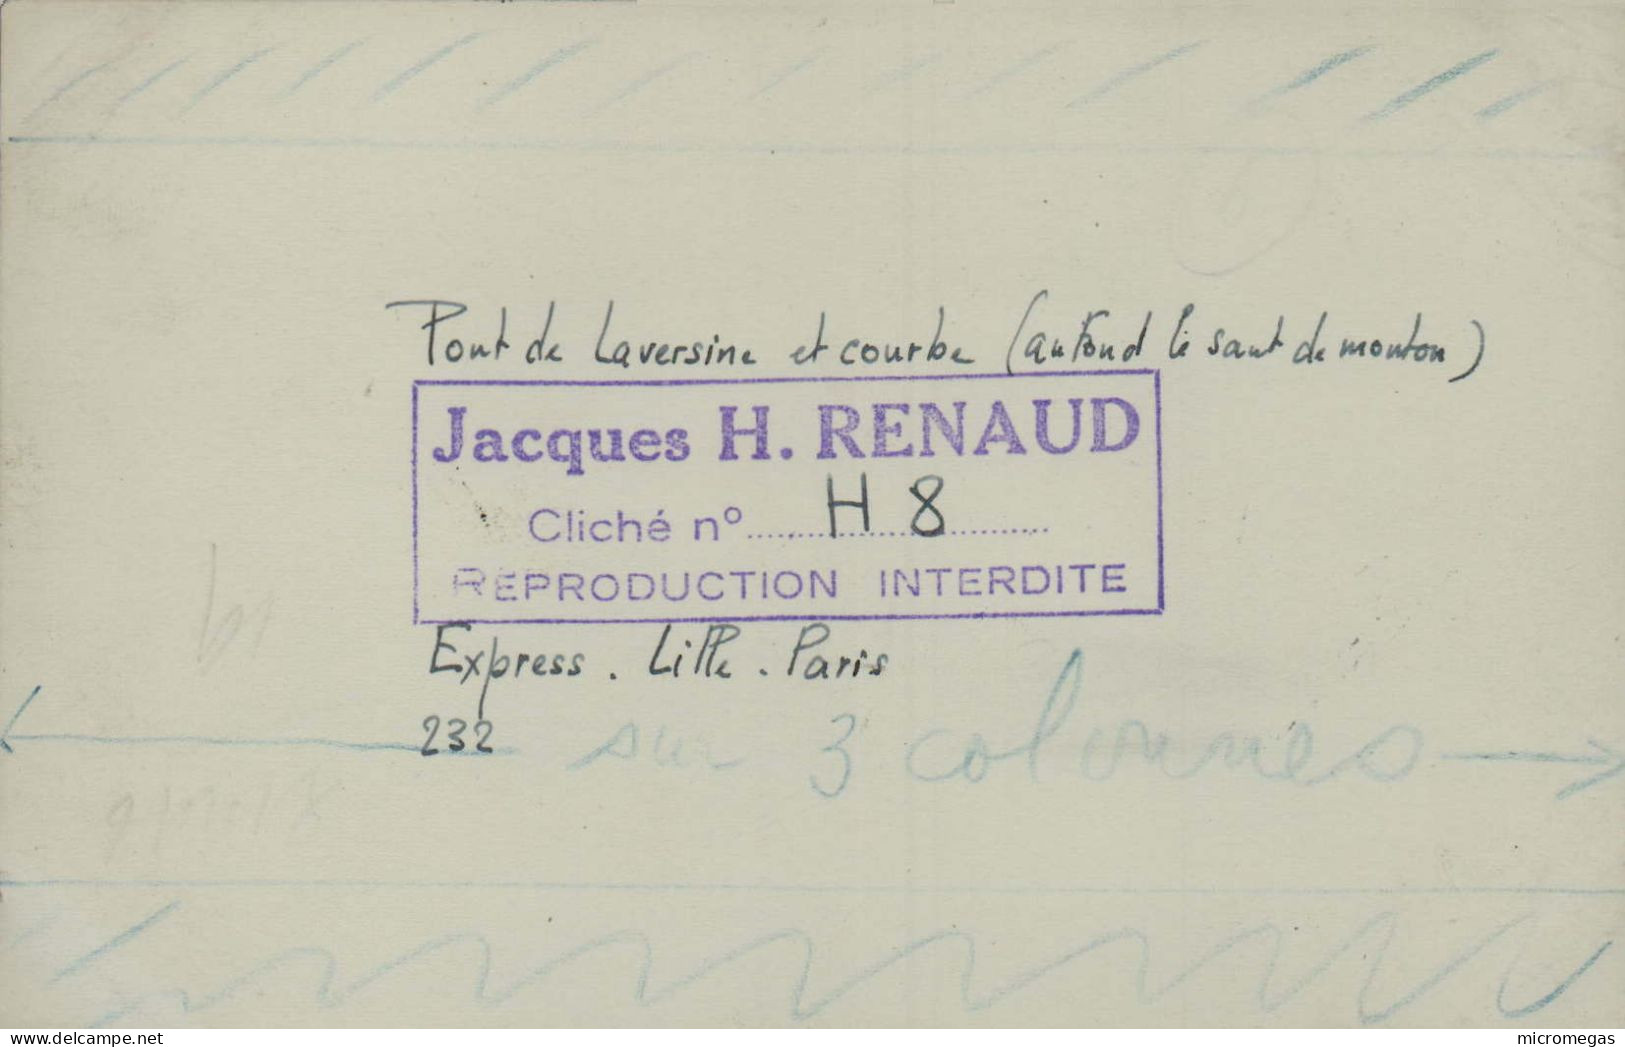 Pont de Laversine et courbe (au fond le saut de mouton)
Jacques H. RENAUD
Cliché n° H 8
REPRODUCTION INTERDITE
Express. Lille. Paris
232
sur 3 colonnes
www.delcampe.net
micromegas